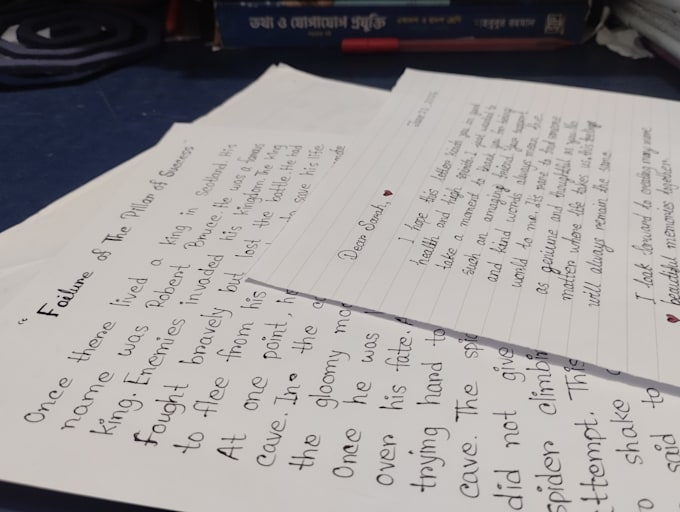 তথ্য ও যোগাযোগ প্রযুক্তি
"Failure of The Pillar of Success"
Once there lived a king in Scotland. His
name was Robert Bruce. He was a famous
king. Enemies invaded his kingdom. The king
Fought bravely but lost the battle. He had
to flee from his to save his life.
At one point, he
cave. In the
the gloomy
Once he was
over his fate
trying hard to
cave. The
did not give
spider climbin
attempt. This
to shake
said to
Dear Sarah, ♥
I hope this letter finds you in good
health and high spirits. I just wanted to
take a moment to thank you for being
such an amazing friend. Your support
and kind words always mean the
world to me. It's rare to find someone
as genuine and thoughtful as you. No
matter where life takes us, this feeling
will always remain the same
I look forward to creating many more
♥ beautiful memories together.